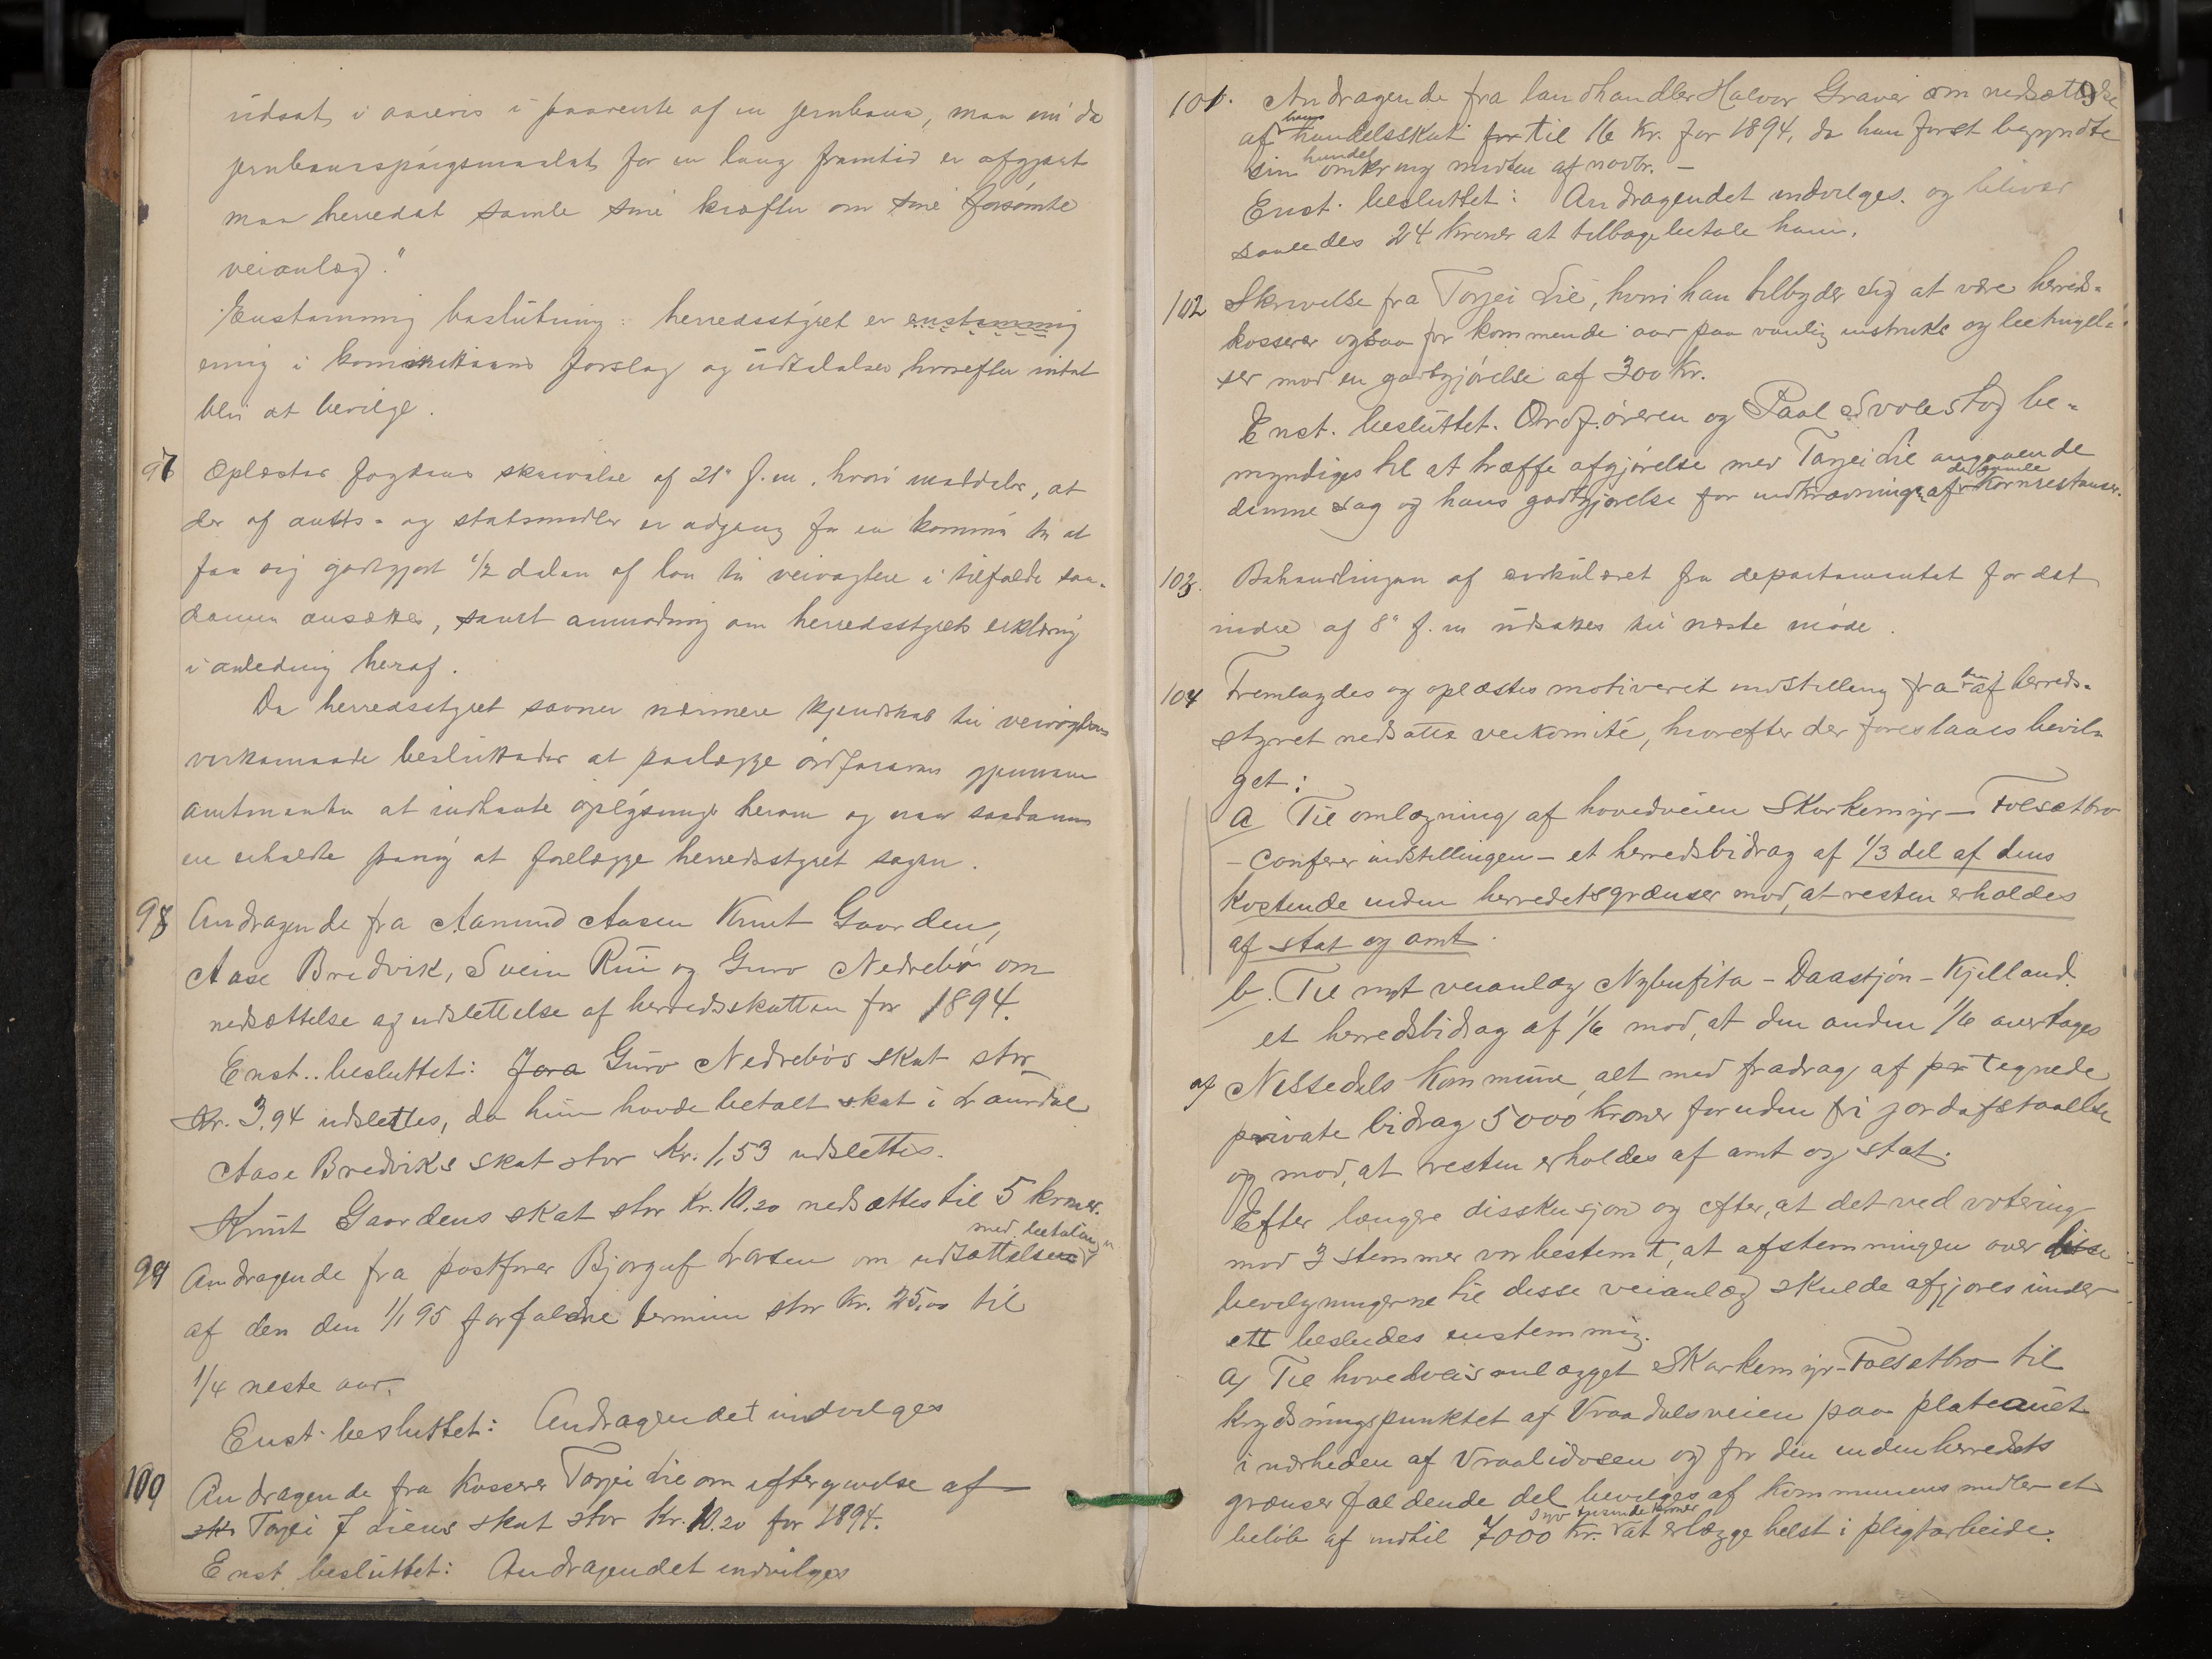 udsat i aarevis i paavente af en jernbane, men nu da
jernbanespørgsmaalet for en lang fremtid er afgjort
maa herredet samle sine kræfter om sine forsømte
veianlæg."
Enstemmig beslutning: herredsstyret er enstemmig
enig i komiteens forslag og udtalelser hvorefter intet
blir at bevilge.
97 Oplæstes fogdens skrivelse af 21' f.m. hvori meddeles, at
der af amts- og statsmidler er adgang for en kommune til at
faa sig godtgjort 1/2 delen af løn til veivogtere i tilfælde saa-
danne ansættes, samt anmodning om herredsstyrets erklæring
i anledning heraf.
Da herredsstyret savner nærmere kjendskab til veivogternes
virksomhed besluttedes at paalægge ordføreren gjennem
amtmanden at indhente oplysninger herom og naar saadanne
er erholdte paany at forelægge herredsstyret sagen.
98 Andragende fra Aamund Aasen Knut Gaarden,
Aase Bredvik, Svein Rui og Guro Nedrebø om
nedsættelse og udslettelse af herredsskatten for 1894.
Enst. besluttet: Jora Guro Nedrebøs skat stor
Kr. 3,94 udslettes, da hun havde betalt skat i Laurdal
Aase Bredviks skat stor Kr. 1,53 udslettes.
Knut Gaardens skat stor Kr. 10.20 nedsættes til 5 kroner.
99 Andragende fra postfører Bjørguf Larsen om udsættelse med betalingen
af den den 1/1 95 forfaldne termin stor Kr. 25,00 til
1/4 neste aar.
Enst. besluttet: Andragendet indvilges
100 Andragende fra Kasserer Torjei Lie om eftergivelse af
sk Torjei J Liens skat stor Kr. 10.20 for 1894.
Enst besluttet: Andragendet indvilges
9
101. Andragende fra landhandler Halvor Graver om nedsættelse
af hans handelsskat for til 16 Kr. for 1894, da han først begyndte
sin handel omkring midten af novbr. -
Enst. besluttet: Andragendet indvilges. og bliver
saaledes 24 kroner at tilbagebetale ham.
102 Skrivelse fra Torjei Lie, hvori han tilbyder sig at være herreds-
kasserer ogsaa for kommende aar paa vanlig instruks og betingel-
ser mod en godtgjørelse af 300 Kr.
Enst. besluttet. Ordføreren og Paal Svolestog be-
myndiges til at træffe afgjørelse med Torjei Lie angaaende
denne sag og hans godtgjørelse for indkrævning af de gamle kornrestanser.
103. Behandlingen af cirkulæret fra departementet for det
indre af 8' f.m udsættes til næste møde.
104 Fremlagdes og oplæstes motiveret indstilling fra den af herreds-
styret nedsatte veikomité, hvorefter der foreslaaes bevil-
get:
a Til omlægning af hovedveien Skorkemyr - Folsætbro
- conferer indstillingen - et herredsbidrag af 1/3 del af dens
kostende inden herredetsgrænser mod, at resten erholdes
af stat og amt.
b. Til nyt veianlæg Nybufita - Daastjøn - Kjelland.
et herredsbidrag af 1/6 mod, at den anden 1/6 overtages
af Nissedals Kommune, alt med fradrag af pr tegnede
private bidrag 5000 kroner foruden fri jordafstaaelse
og mod, at resten erholdes af amt og stat.
Efter længere disskusjon og efter, at det ved votering
mod 3 stemmer var bestemt, at afstemningen over disse
bevilgningerne til disse veianlæg skulde afgjøres under
ett besluttedes enstemmig.
a) Til hovedveisanlægget Skorkemyr-Folsætbro til
krydsningspunktet af Vraadalsveien paa plateauet
i nærheden af Vraaliosen og for den inden herredets
grænser faldende del bevilges af kommunens midler et
beløb af indtil 7000 Kr. syv tusinde kroner at erlægge helst i pligtarbeide.